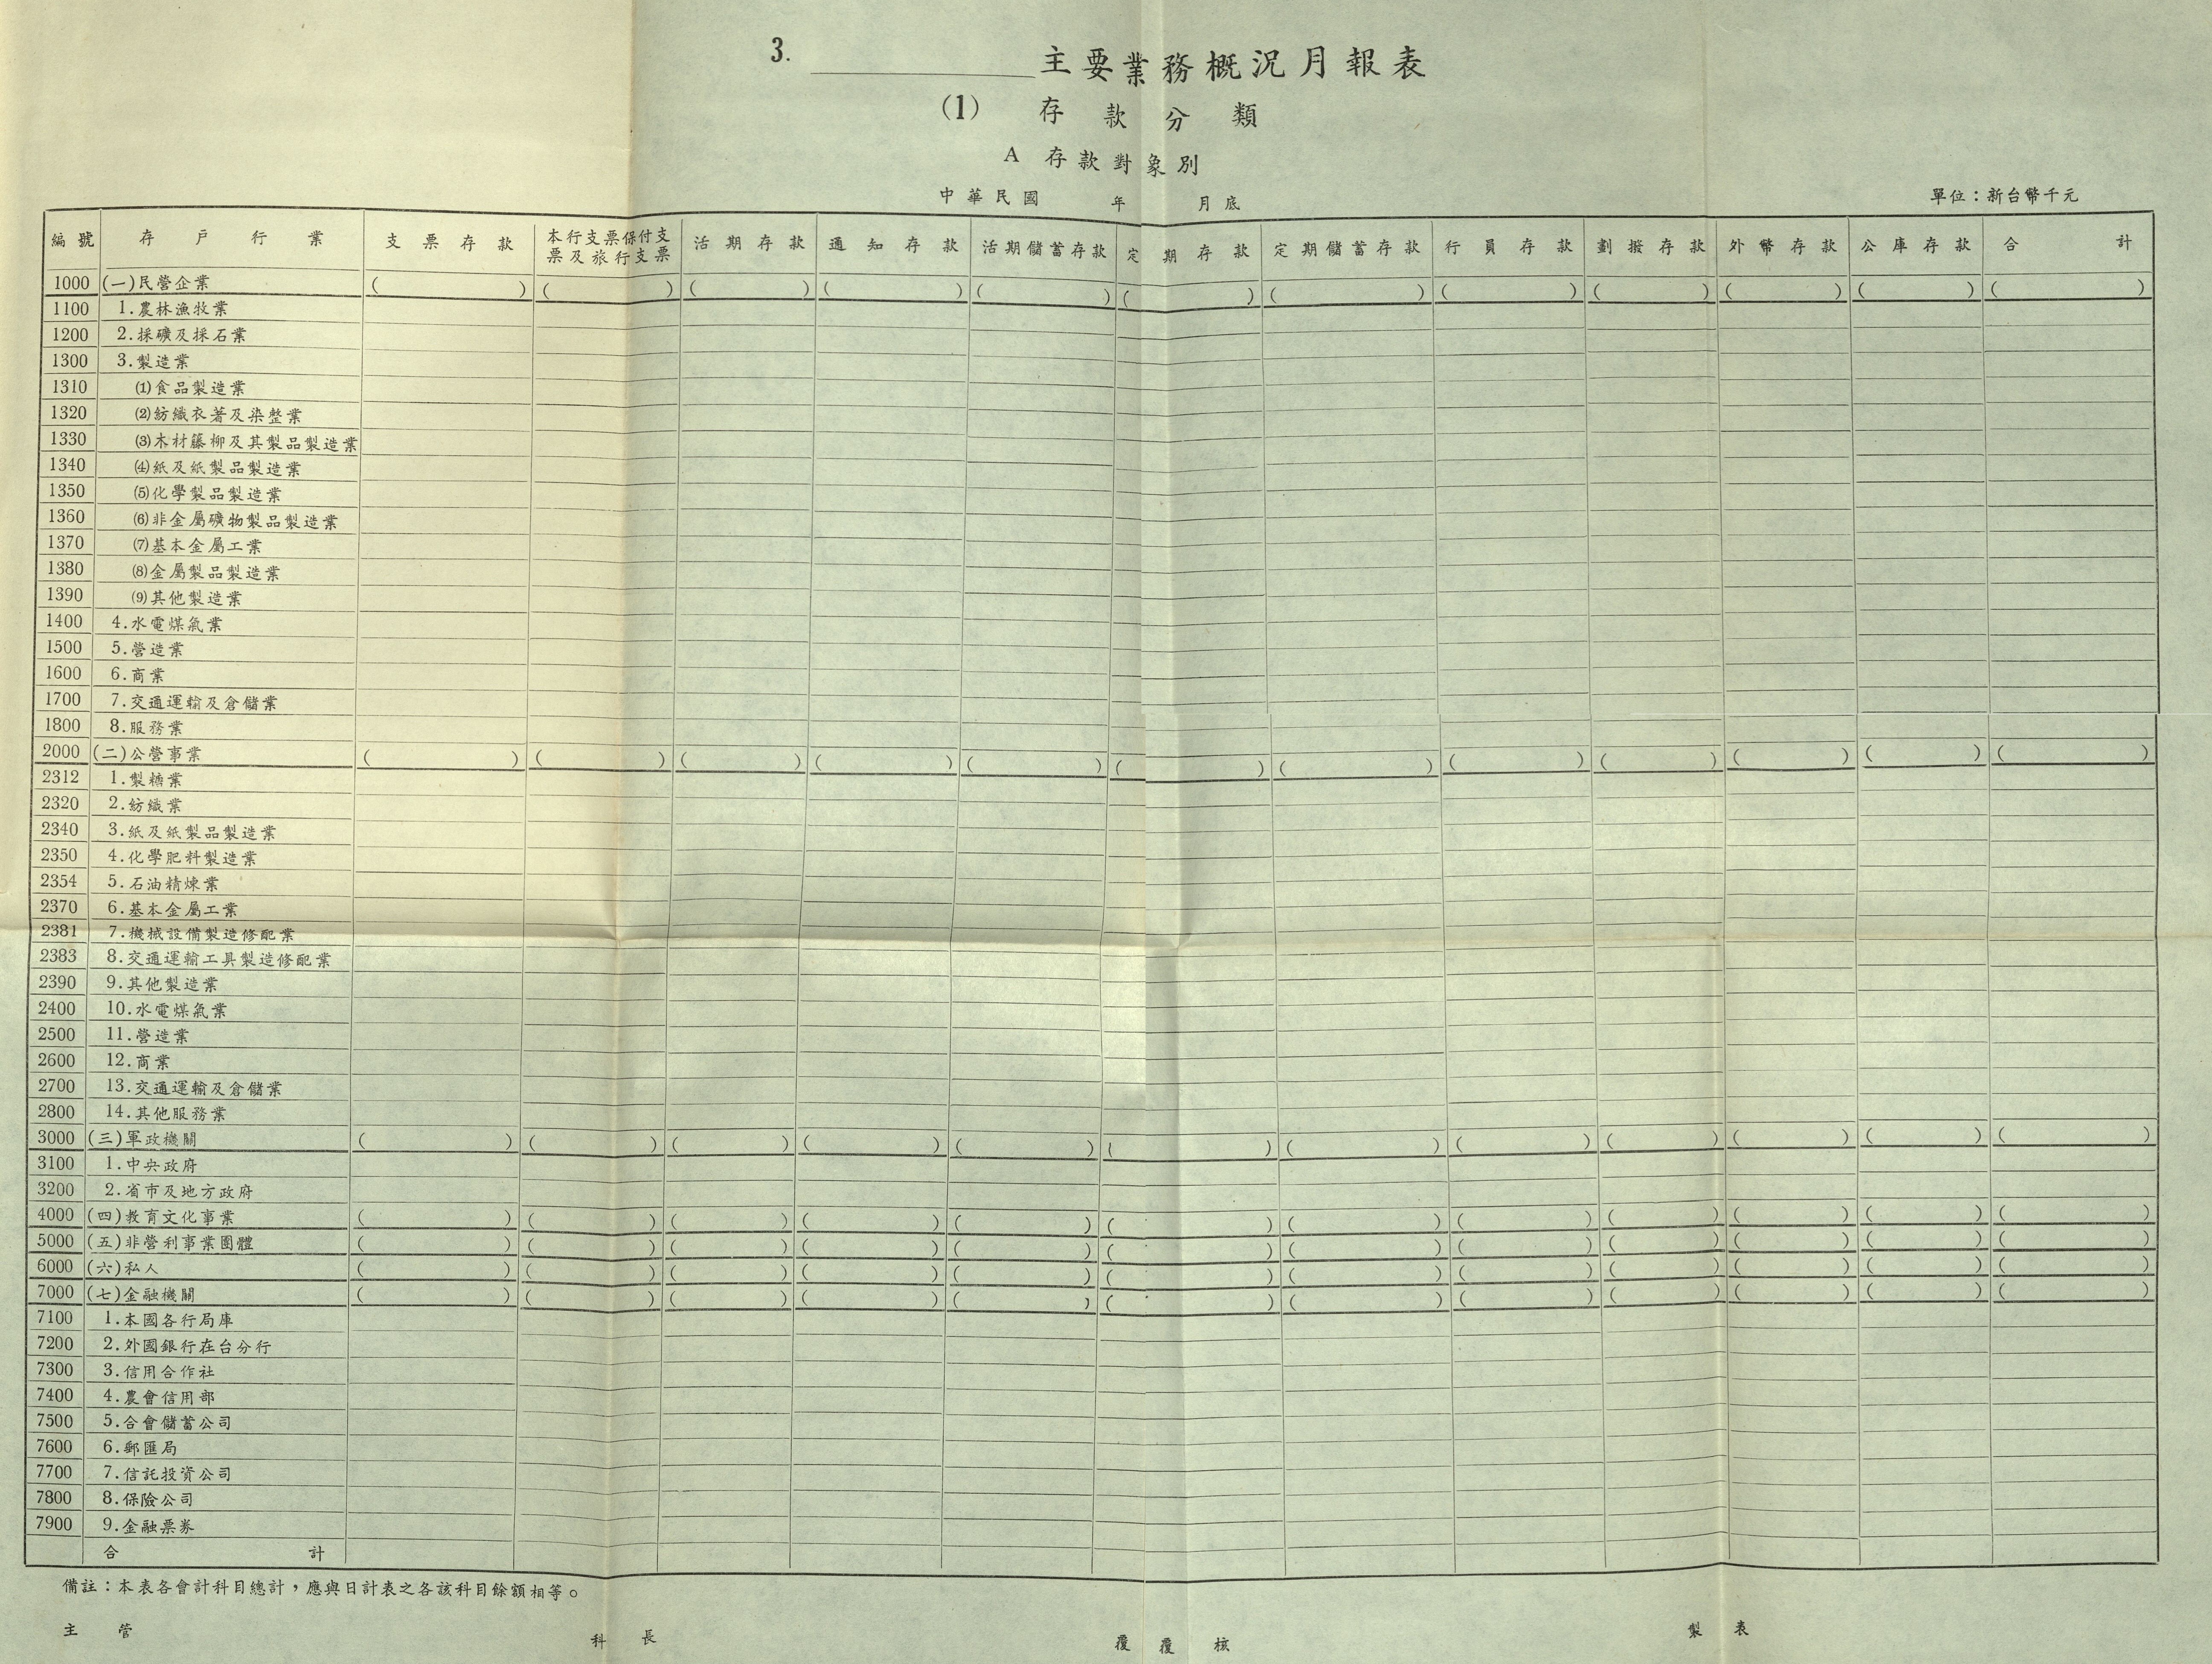 3. 主要業務概況月報表
(1) 存款分類
A 存款對象別
中華民國 年 月底 單位：新台幣千元
編號 存戶行業 支票存款 本行支票保付支票及旅行支票 活期存款 通知存款 活期儲蓄存款 定期存款 定期儲蓄存款 行員存款 劃撥存款 外幣存款 公庫存款 合計
1000 (一)民營企業 ( ) ( ) ( ) ( ) ( ) ( ) ( ) ( ) ( ) ( ) ( ) ( )
1100 1.農林漁牧業
1200 2.採礦及採石業
1300 3.製造業
1310 (1)食品製造業
1320 (2)紡織衣著及染整業
1330 (3)木材籐柳及其製品製造業
1340 (4)紙及紙製品製造業
1350 (5)化學製品製造業
1360 (6)非金屬礦物製品製造業
1370 (7)基本金屬工業
1380 (8)金屬製品製造業
1390 (9)其他製造業
1400 4.水電煤氣業
1500 5.營造業
1600 6.商業
1700 7.交通運輸及倉儲業
1800 8.服務業
2000 (二)公營事業 ( ) ( ) ( ) ( ) ( ) ( ) ( ) ( ) ( ) ( ) ( ) ( )
2312 1.製糖業
2320 2.紡織業
2340 3.紙及紙製品製造業
2350 4.化學肥料製造業
2354 5.石油精煉業
2370 6.基本金屬工業
2381 7.機械設備製造修配業
2383 8.交通運輸工具製造修配業
2390 9.其他製造業
2400 10.水電煤氣業
2500 11.營造業
2600 12.商業
2700 13.交通運輸及倉儲業
2800 14.其他服務業
3000 (三)軍政機關 ( ) ( ) ( ) ( ) ( ) ( ) ( ) ( ) ( ) ( ) ( ) ( )
3100 1.中央政府
3200 2.省市及地方政府
4000 (四)教育文化事業 ( ) ( ) ( ) ( ) ( ) ( ) ( ) ( ) ( ) ( ) ( ) ( )
5000 (五)非營利事業團體 ( ) ( ) ( ) ( ) ( ) ( ) ( ) ( ) ( ) ( ) ( ) ( )
6000 (六)私人 ( ) ( ) ( ) ( ) ( ) ( ) ( ) ( ) ( ) ( ) ( ) ( )
7000 (七)金融機關 ( ) ( ) ( ) ( ) ( ) ( ) ( ) ( ) ( ) ( ) ( ) ( )
7100 1.本國各行局庫
7200 2.外國銀行在台分行
7300 3.信用合作社
7400 4.農會信用部
7500 5.合會儲蓄公司
7600 6.郵匯局
7700 7.信託投資公司
7800 8.保險公司
7900 9.金融票券
合計
備註：本表各會計科目總計，應與日計表之各該科目餘額相等。
主管 科長 覆覆核 製表